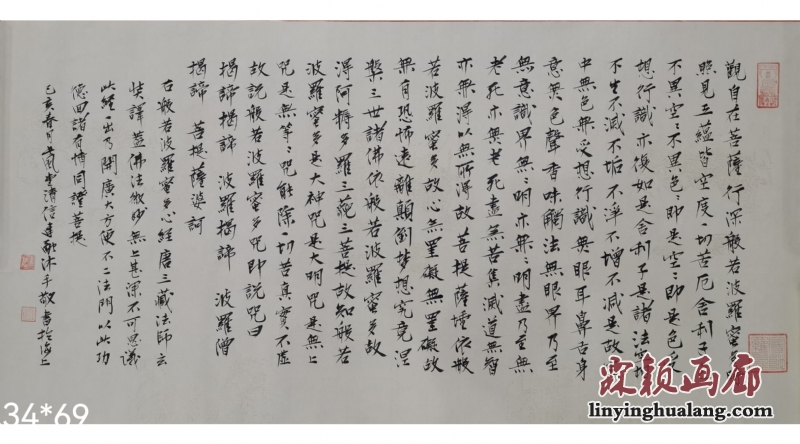 觀自在菩薩行深般若波羅蜜多
照見五蘊皆空度一切苦厄舍利子
不異空空不異色色即是空空即是色受
想行識亦復如是舍利子是諸法空
不生不滅不垢不淨不增不減是故
中無色無受想行識無眼耳鼻舌身
意無色聲香味觸法無眼界乃至
無意識界無無明亦無無明盡乃至無
老死亦無老死盡無苦集滅道無智
亦無得以無所得故菩提薩埵依般
若波羅蜜多故心無罣礙無罣礙故
無有恐怖遠離顛倒夢想究竟涅
槃三世諸佛依般若波羅蜜多故
得阿耨多羅三藐三菩提故知般若
波羅蜜多是大神咒是大明咒是無上
咒是無等等咒能除一切苦真實不虛
故說般若波羅蜜多咒即說咒曰
揭諦揭諦 波羅揭諦 波羅僧
揭諦 菩提薩婆訶
右般若波羅蜜多心經唐三藏法師玄
奘譯蓋佛法微妙無上甚深不可思議
此經一出乃開廣大方便不二法門以此功
德回諸有情同證菩提
己亥春月 濟信 沐手敬書於
34*69
霖颖画廊
linyinghualang.com